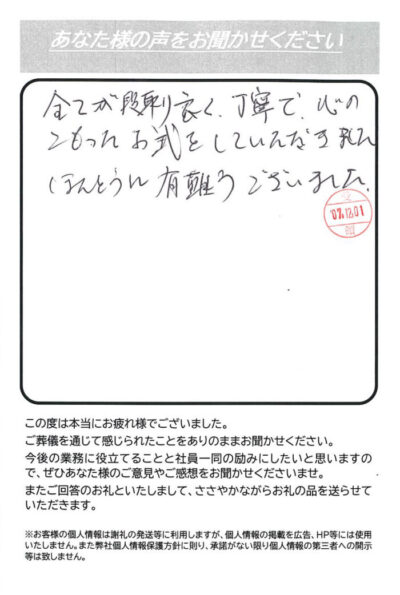 あなた様の声をお聞かせください
全てが段取り良く、丁寧で、心の
こもったお式をしていただきました
ほんとうに有難うございました。
'07.12.01
この度は本当にお疲れ様でございました。
ご葬儀を通じて感じられたことをありのままお聞かせください。
今後の業務に役立てることと社員一同の励みにしたいと思いますの
で、ぜひあなた様のご意見やご感想をお聞かせくださいませ。
またご回答のお礼といたしまして、ささやかながらお礼の品を送らせて
いただきます。
※お客様の個人情報は謝礼の発送等に利用しますが、個人情報の掲載を広告、HP等には使用
いたしません。また弊社個人情報保護方針に則り、承諾がない限り個人情報の第三者への開示
等は致しません。